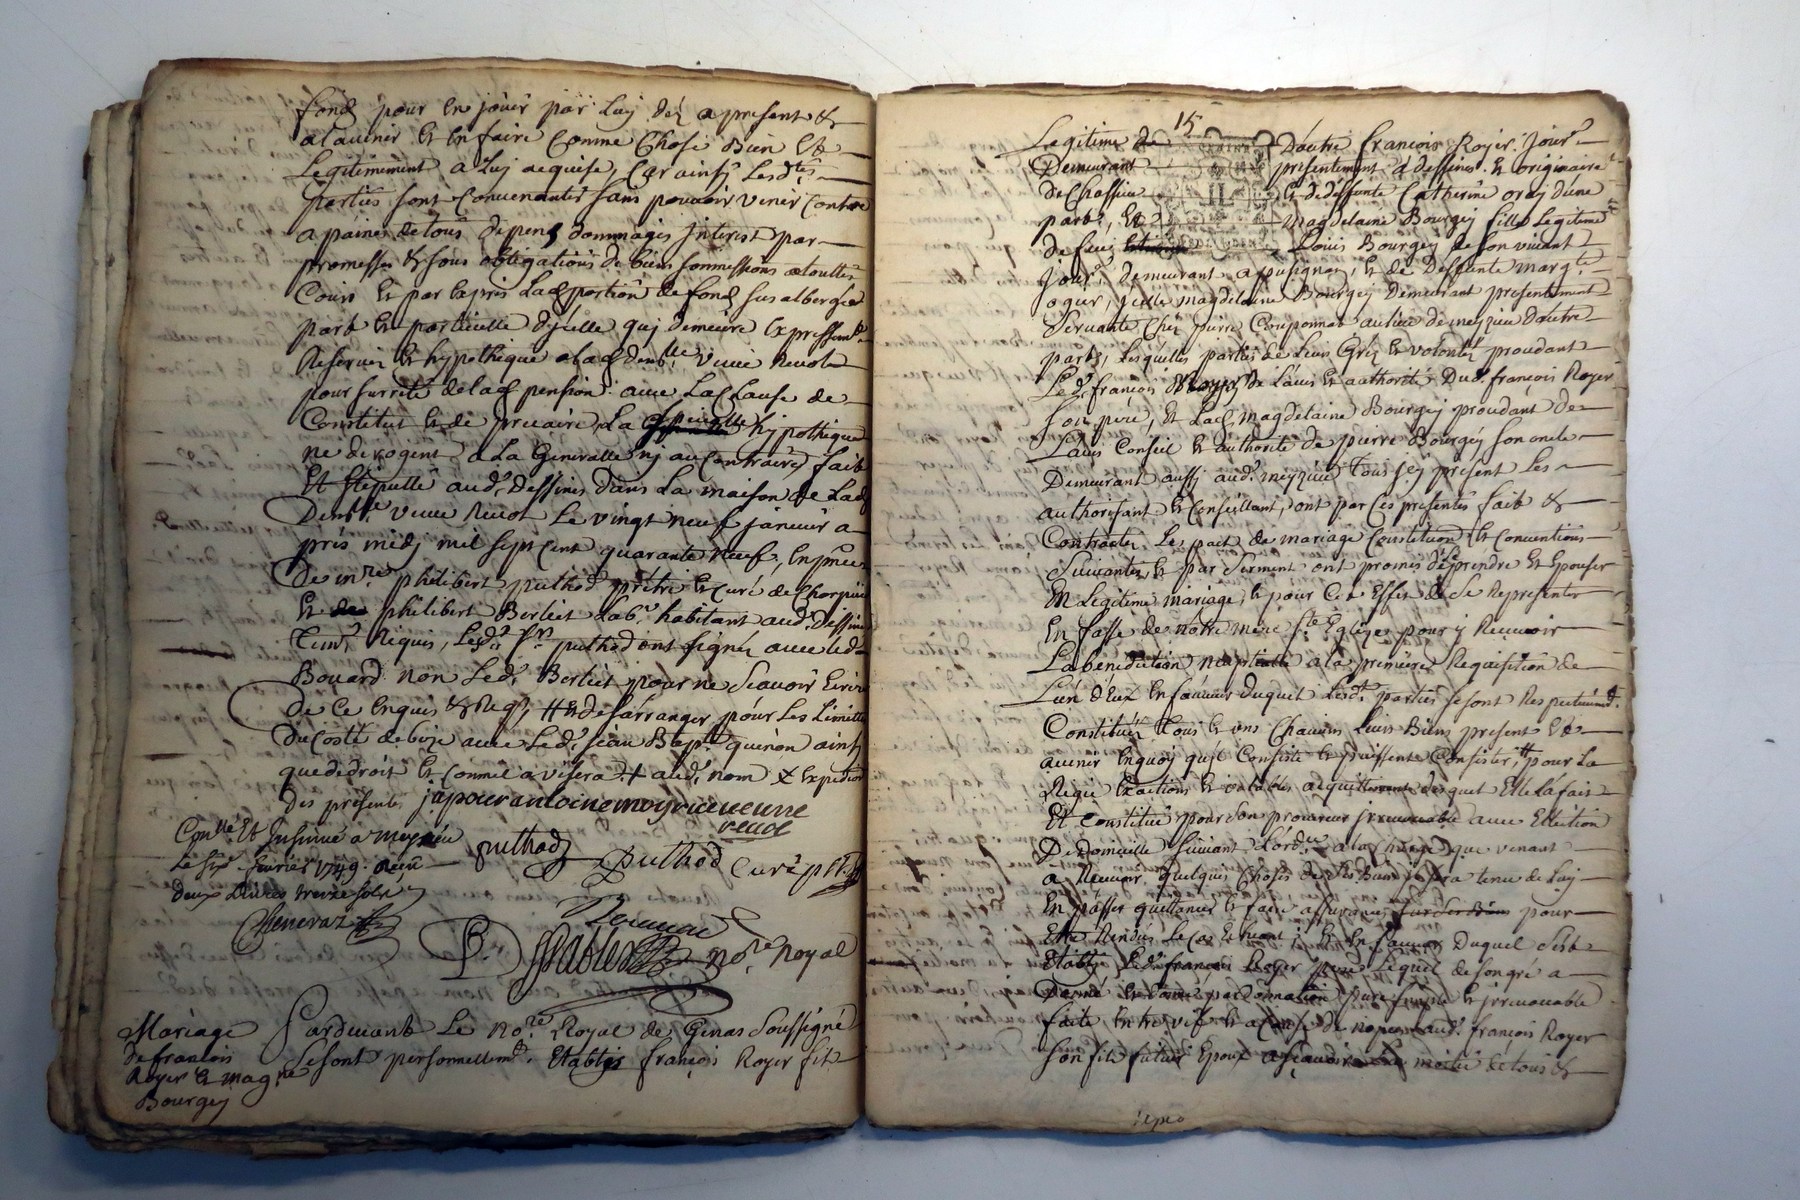 fond pour en jouir par luy dez a present &
alavenir et en faire comme chose bien et
Legitimement a luy acquise, Car ainsy Lesdtes
parties sont convenantes sans pouvoir venir contre
a paines de tous depens dommages jnterest par
promesses & sous obligations de biens sommissions a touttes
Cours et par exprés Lad portion de fond sus albergée
part et particulle d'jcelle quj demeure expressemt
Reservée et hypothequée alad demlle veuve Revol
pour surreté delad pension avec La Clause de
Constitut et de precaire, La hypotheque
ne derogent a La Generalle nj au contraire, fait
Et stipullé aud. Dessines dans La maison de Lad
Demlle veuve Revot Le vingt neuf janvier a
prés midj mil sept cent quarante neuf, En pnce
De mre philibert puthod prêtre et curé de Chorpieu
Et philibert Berliet Labr habitant aud. Dessines
Temt Requis, Led. Sr puthod ont signéz avec led.
Bouard non Led. Berliet pour ne scavoir Ecrire
De Ce Enquis & Reqs, # et de sarranger pour les Limites
du costé de bize avec Led. jean Baptte quenon ainsy
que de droit et comme avisera + aud. nom x expedition
des presents
vefve
Conllé Et Jnsinué a meyzieu
Le fevrier 1749. Reçu
deux Livres treize sols
puthod
puthod Curé
Chenevaz
P.
nore Royal
Mariage
de francois
Royer et magne
Bourgey
Pardevant Le nore Royal de Genas Soussigné
se sont personnellemt. Etablys françois Royer fils
15
Legitime de Dautre francois Royer Jourr
Demeurant presentement a dessines et originaire
de Chassieu & de deffunte Catherine oraj dune
part, Et Magdelaine Bourgey fille Legitime
de feu Louis Bourgey de son vivant
Jourr. Demeurant a pusignan, & de Deffunte margte
ogier, jcelle magdelaine Bourgey Demeurant presentement
Servante chéz pierre Componnat au lieu de meyzieu Dautre
part, Lesquelles parties de Leurs Gréz et volontéz procedant
Led. francois Royer de Lavis et authorité Dud. francois Royer
son pere, et Lad. magdelaine Bourgey procedant de
Lavis Conseil et authorité de pierre Bourgey son oncle
Demeurant aussy aud. meyzieu Tous jcy présent Les
authorisant et conseillant, ont par ces presentes fait &
Contracté Les pact de mariage Constitution et Conventions
Suivantes, et par Serment ont promis dese prendre et Epouser
En Legitime mariage, et pour Cet Effet de se Representer
En fasse de notre mere Ste Eglise pour y Recevoir
La benediction nuptialle a la premiere Requisition de
Lun d'eux en faveur duquel Lesdt. parties se sont Respectivemt.
Constituéz Tous et uns Chacuns Leurs Biens present et
avenir Enquoy quil Consiste et puissent Consister, pour La
Regie Exactions et vallables acquittement desquel Elle la fait
Et Constitué pour son procureur jrrevocable avec Ellection
De domicille suivant Lordre a la Charge que venant
a Recevoir quelques choses de ses Biens jl sera tenu de Luy
En passer quittance et faire assurance sur ses Biens pour
Etre Rendus Le cas Echeant; et En faveur Duquel sest
Etably Led. francois Royer pere Lequel de son gré a
Donné et donne par donnation pure simple et jrrevocable
faite Entre vif et a cause de nopces aud. francois Royer
son fils futur Epoux ascavoir La moitié de tous &